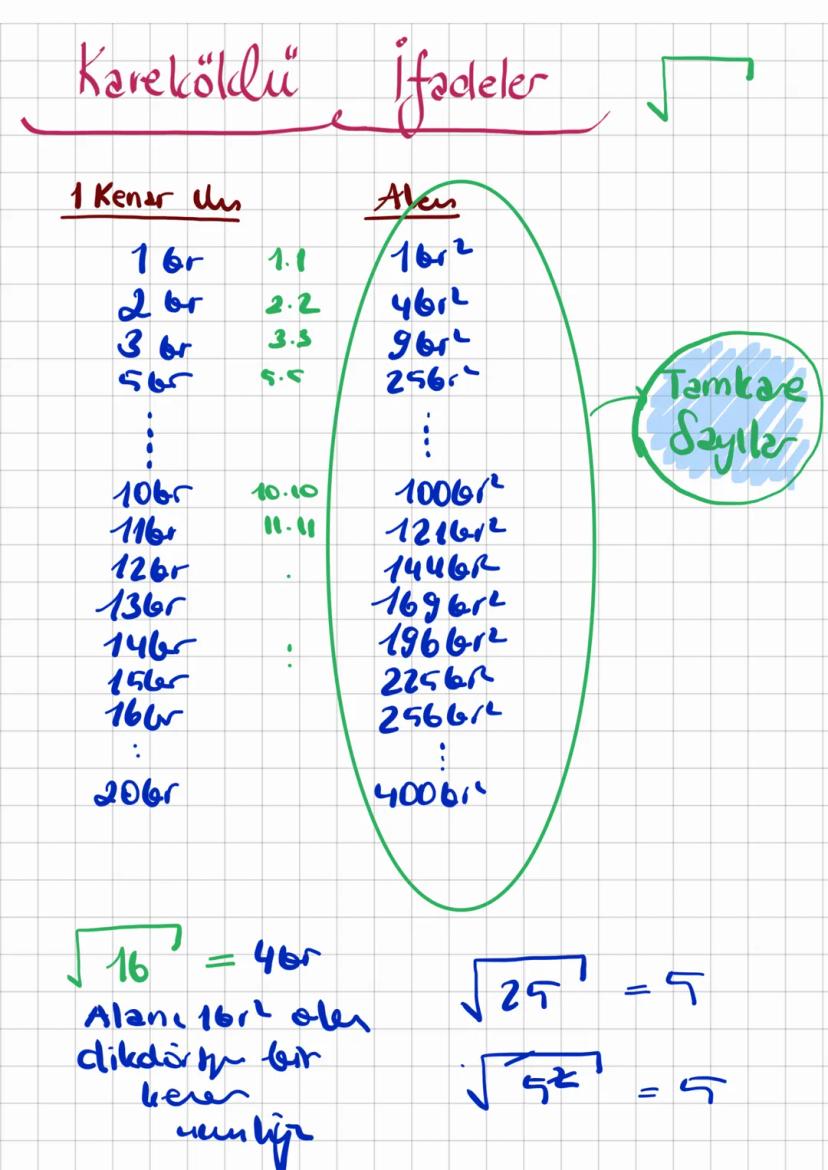 Kareköklü İfadeler √
1 Kenar Uzn Alan
1 br 1.1 1br²
2 br 2.2 4br²
3 br 3.3 9br²
5br 5.5 25br²
Tamkare
Sayılar
10br 10.10 100br²
11br 11.11 121br²
12br . 144br²
13br 169br²
14br : 196br²
15br 225br²
16br 256br²
20br 400br²
√16 = 4br
Alanı 16r² olan
dikdörtgen bir
kenar
uzunluğu
√25 = 5
√5² = 5